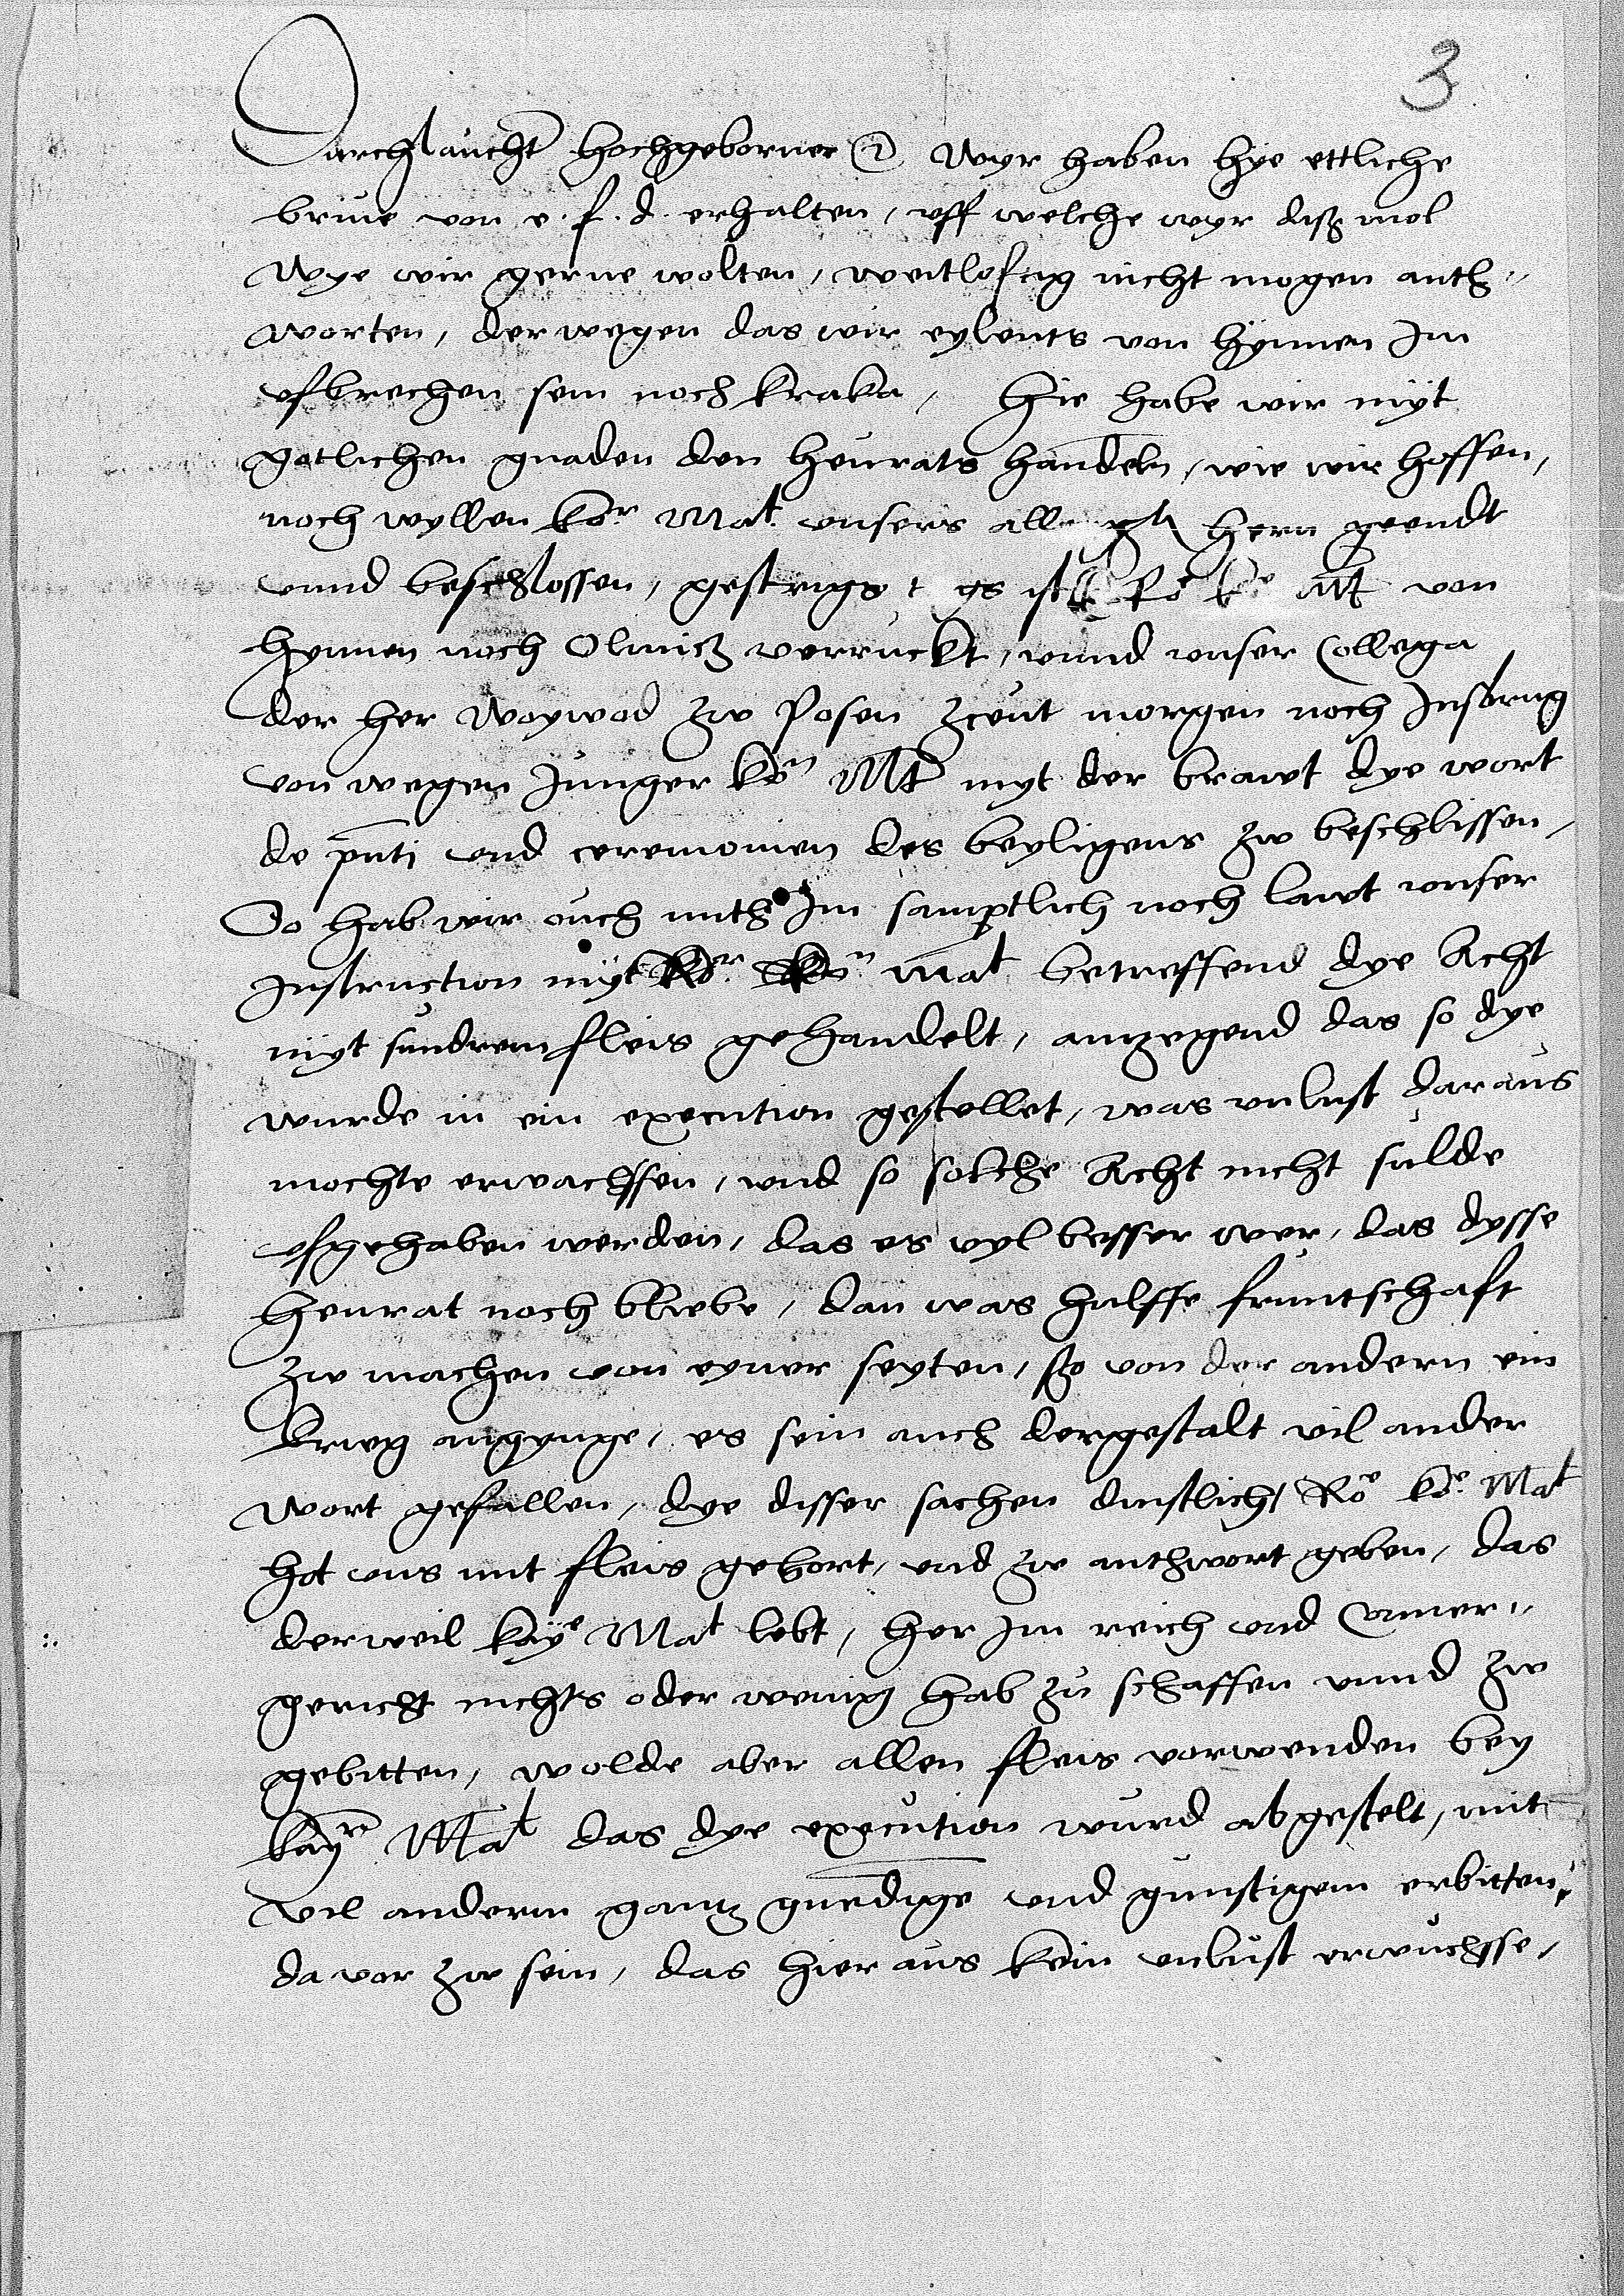 3
Durchlaucht hochgeborner etc. Wyr haben hye ettliche
briue von e. f. d. erhalten, vff welche wyr diß mol
Wye wir gerne wolten, weitloftig nicht mogen anth-
worten, der wegen das wir eylents von hynnen Im
vfbrechen sein noch kraka, Hie habe wir myt
gotlichen gnaden den heurats handeln, wie wir hoffen,
noch wyllen kor Mat vnsers hern geendt
vnnd beschlossen, gestrigs t gs ist Ro ko Mt von
hynnen noch Olmucz verruckt, vnnd vnser Collega
der her Woywod zw Posen zceut morgen noch Insbrug
von wegen Junger kon Mt myt der brawt dye wort
de pnti vnd ceremonien des beyligens zw beschlissen,
So hab wir ouch mith Im samptlich noch lawt vnser
Instruction myt Ror kon Mat betreffend dye Acht
myt sundrem fleis gehandelt, anzegend das so dye
wurde in ein execution gestellet, was vnlust daraus
mochte erwachssen, vnd so solche Acht nicht sulde
vfgehaben werden, das es vyl besser wer, das dysse
heurat noch bliebe, dan was hulffe fruntschaft
zw machen von eyner seyten, so von der andern ein
krieg angynge, es sein auch dergestalt vil ander
wort gefallen, dye disser sachen dinstlich, Roe koe Mat
hot vns mit fleis gehort, vnd zw anthwort geben, das
derweil kaye Mat lebt, her Im reich vnd Camer-
gericht nichts oder wenig hab zu schaffen vnnd zw
gebitten, wolde aber allen fleis vorwenden bey
kayr Mat das dye execution wurd abgestelt, mit
vil anderm gantz gnedige vnd gunstigem erbitten,
da vor zw sein, das hieraus kein vnlust erwuchsse,